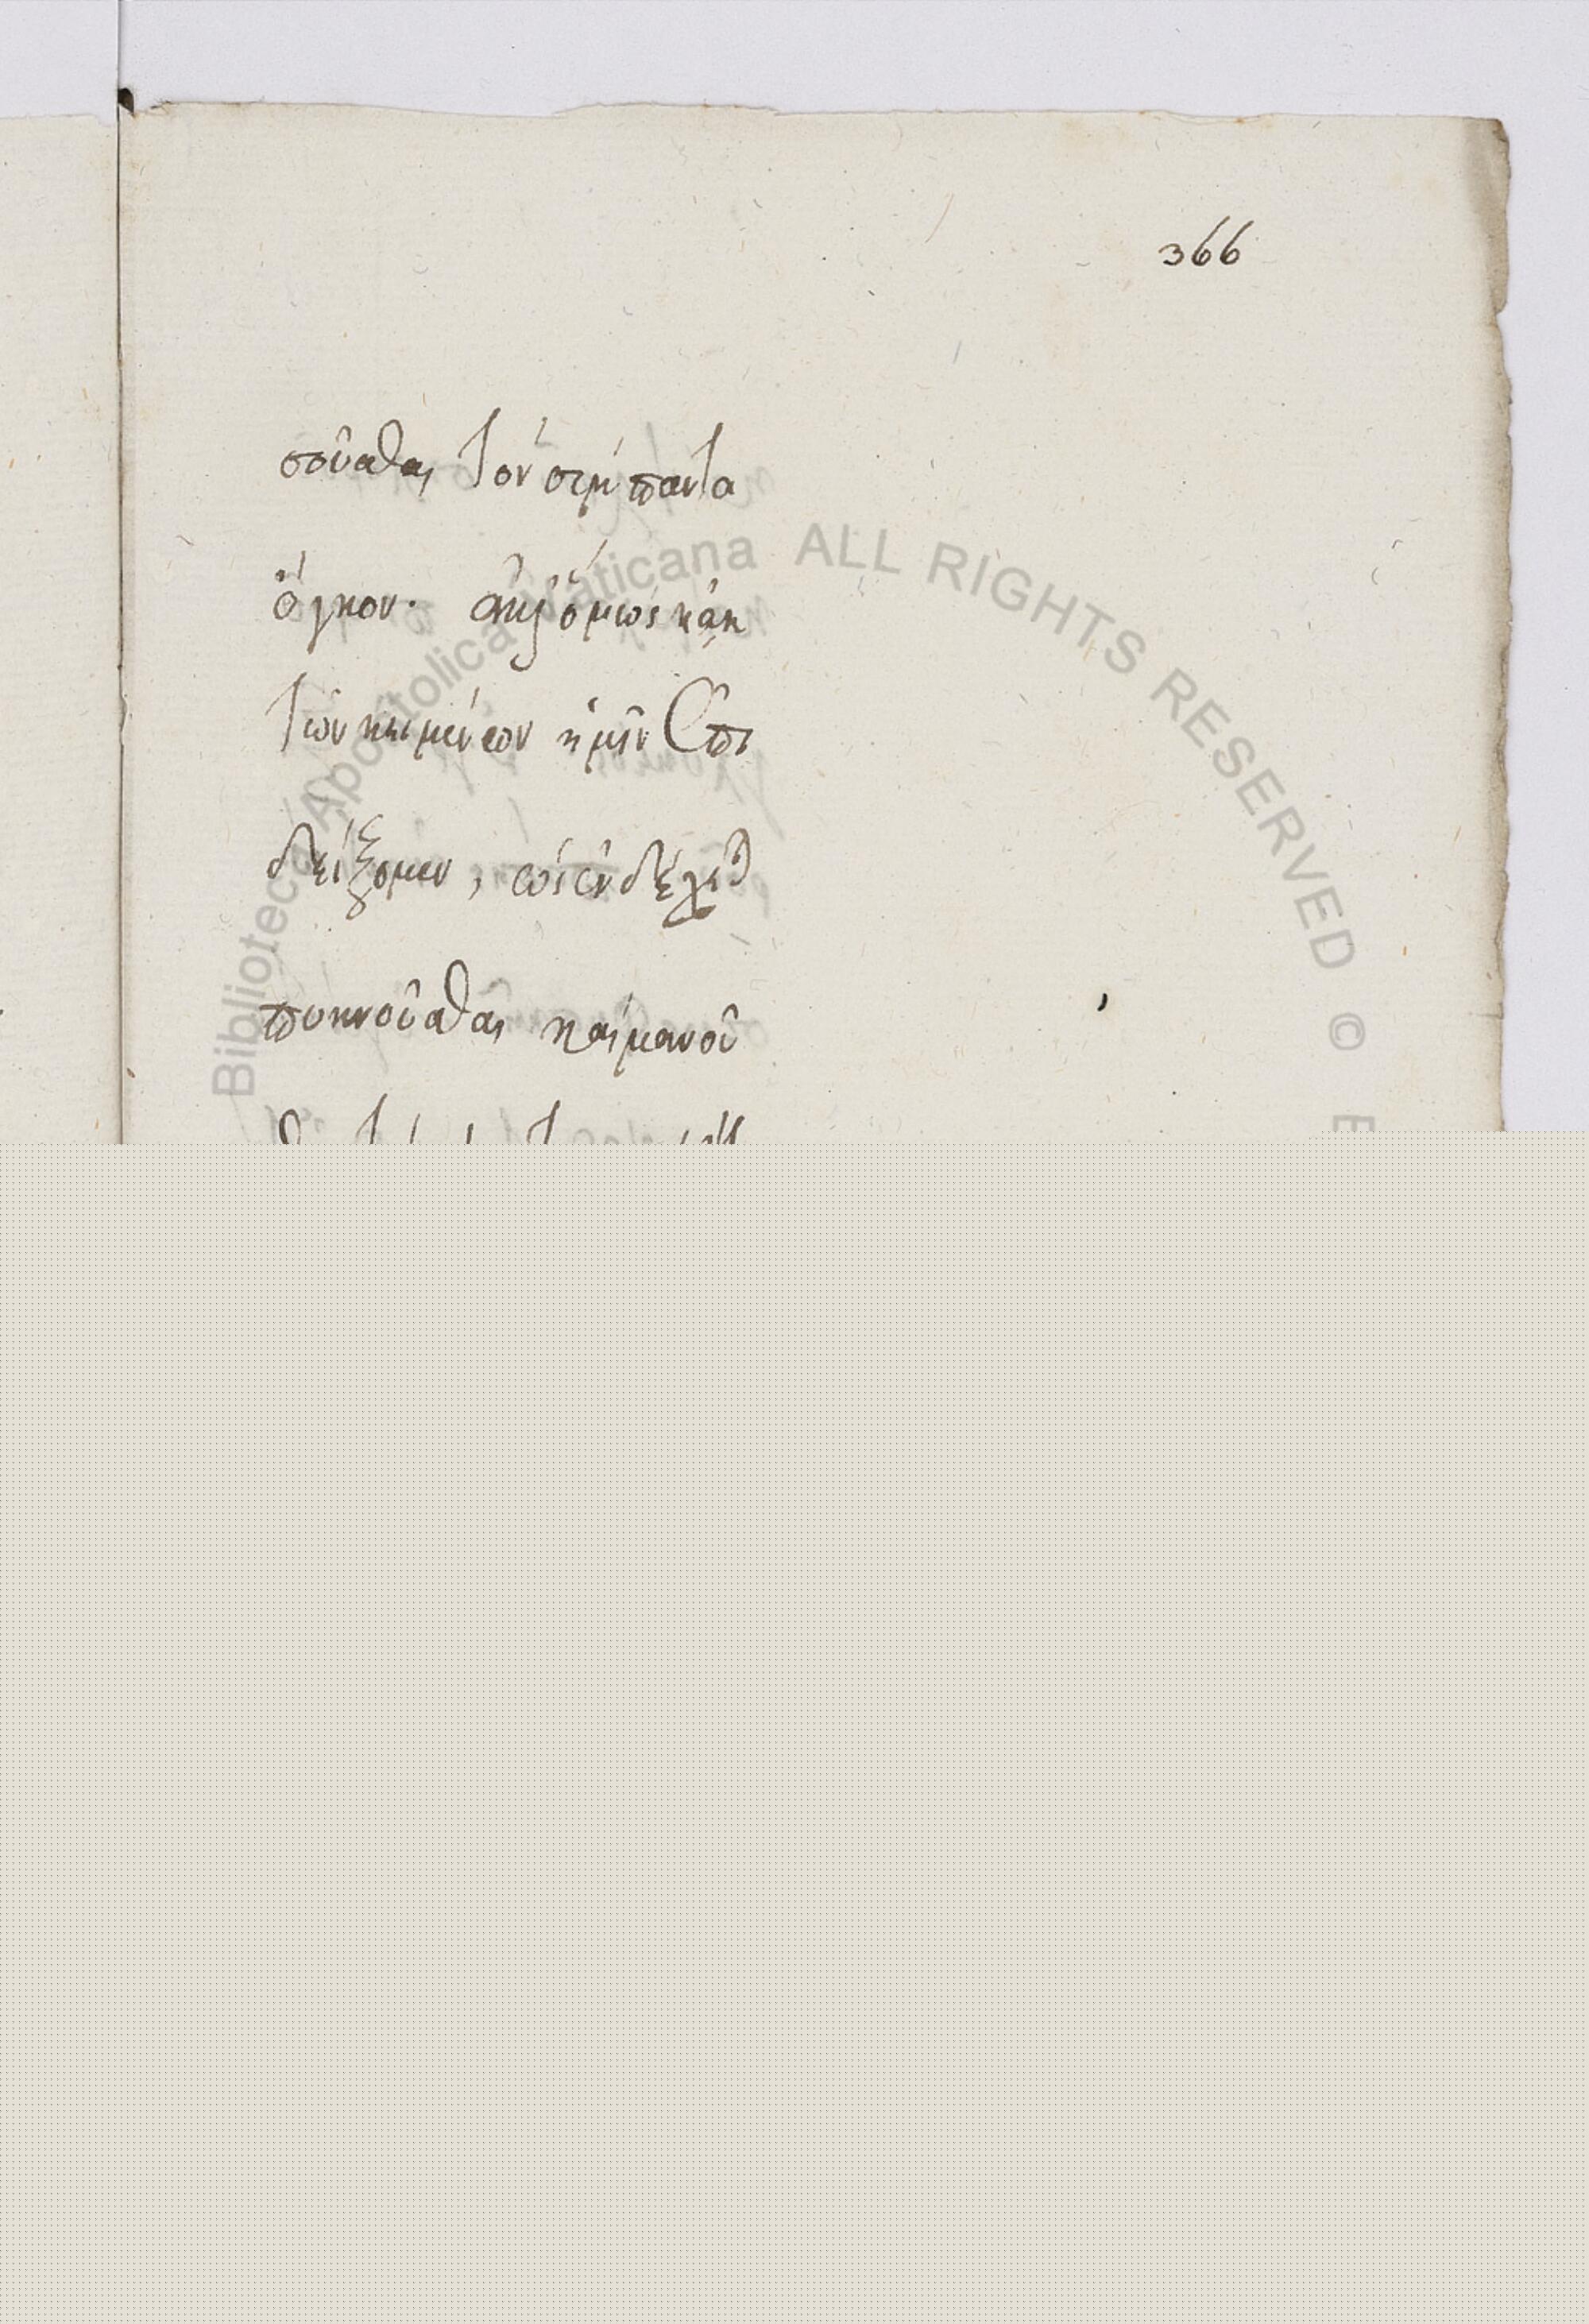 366
σοῦσθαι τὸν σύμπαντα
ὄγκον. ὅμως κἀκ
τῶν κειμένων ἡμῖν ἐπι
δείξομεν, ὡς ἐνδέχεται
πυκνοῦσθαι καὶ μανοῦ
Biblioteca Apostolica Vaticana ALL RIGHTS RESERVED ©